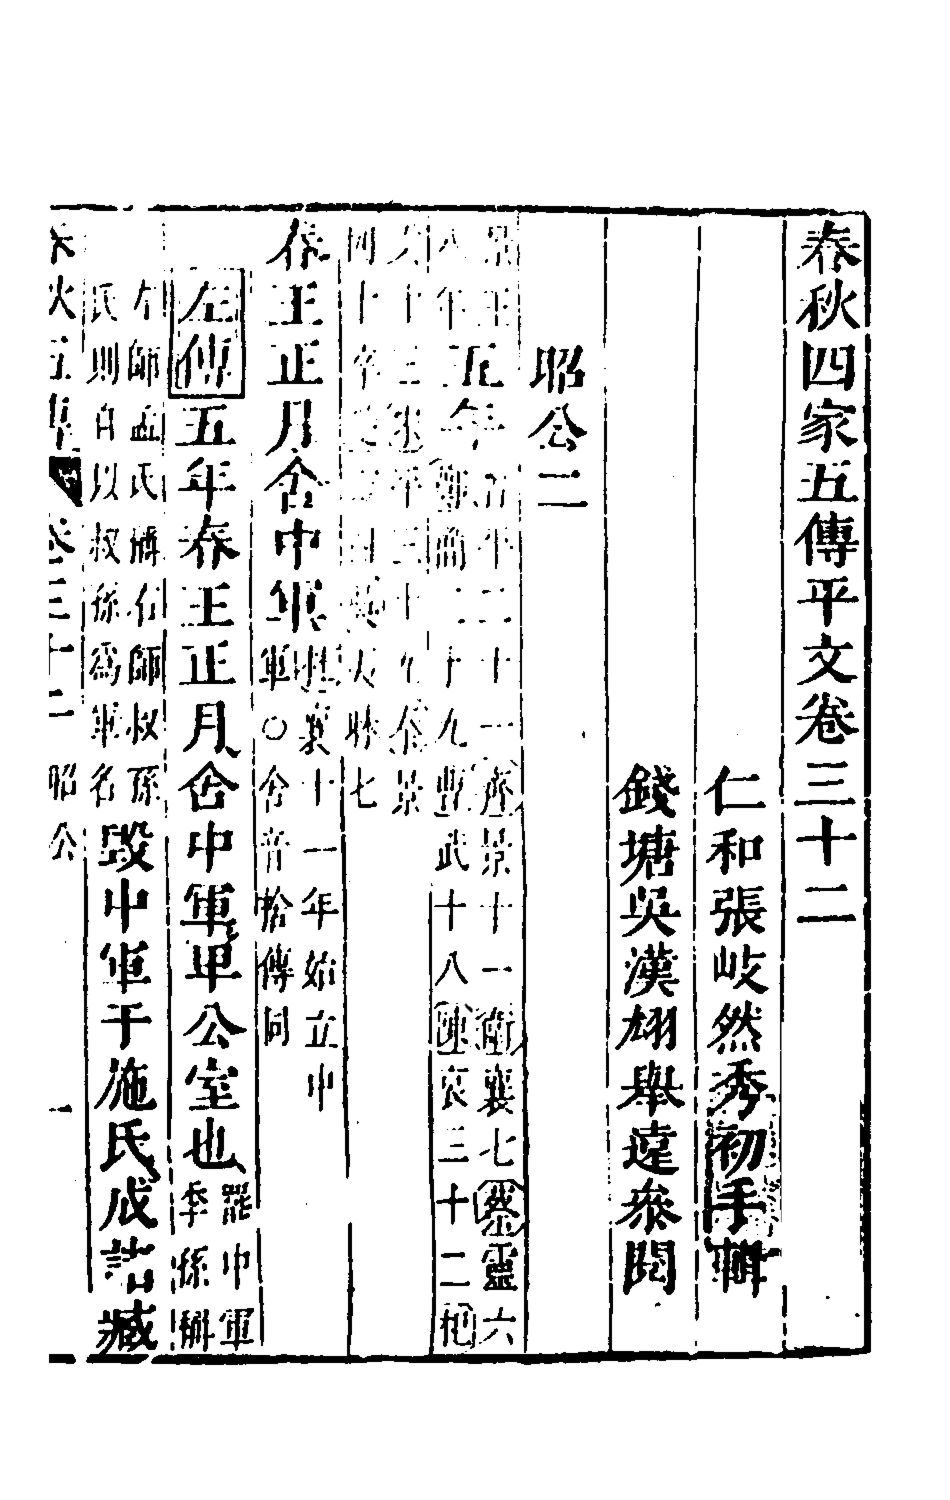 春秋四家五傳平文卷三十二
仁和張岐然秀初手輯
錢塘吳漢翃舉遠叅閱
昭公二
景王
八年
五年
晉平二十一齊景十一衛襄七蔡靈六
鄭簡二十九曹武十八陳哀三十二杞
文十三宋平三十九秦景
四十卒楚靈四吳夷昧七
春王正月舍中軍
杜襄十一年始立中
軍○舍音捨傳同
左傳五年春王正月舍中軍卑公室也
罷中軍
季孫稱
左師孟氏稱右師叔孫
氏則自以叔孫爲軍名
毀中軍于施氏成諸臧
春秋五傳 卷三十二 昭公 一